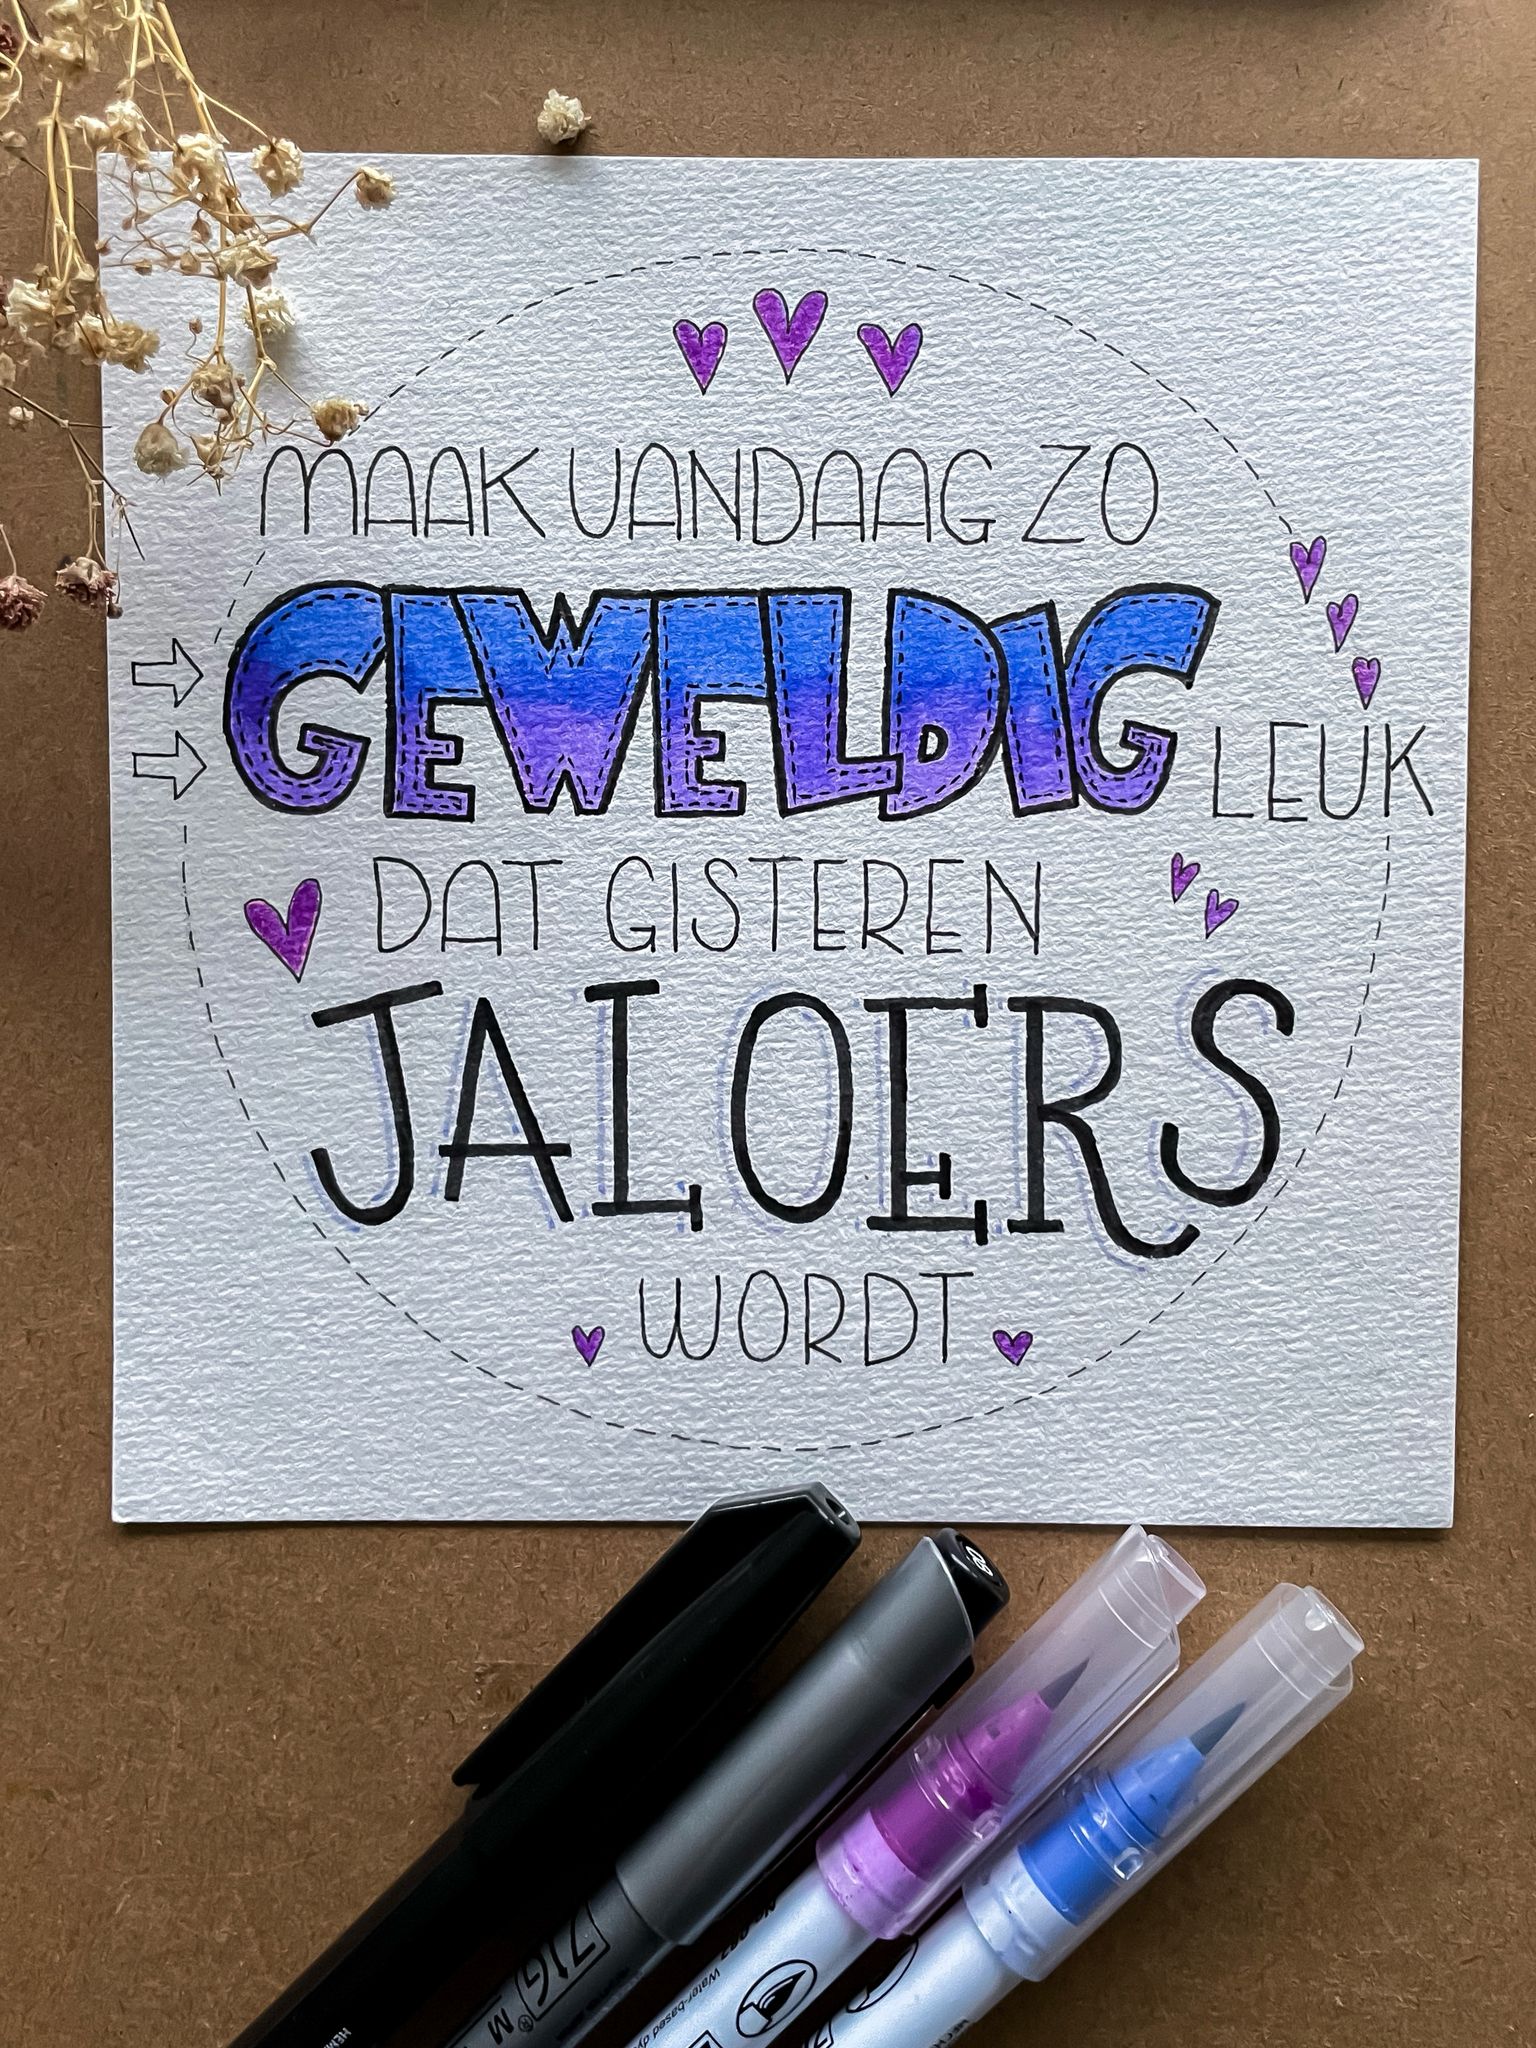 MAAK VANDAAG ZO
GEWELDIG LEUK
DAT GISTEREN
JALOERS
WORDT
08
ZIG
M
Water-based